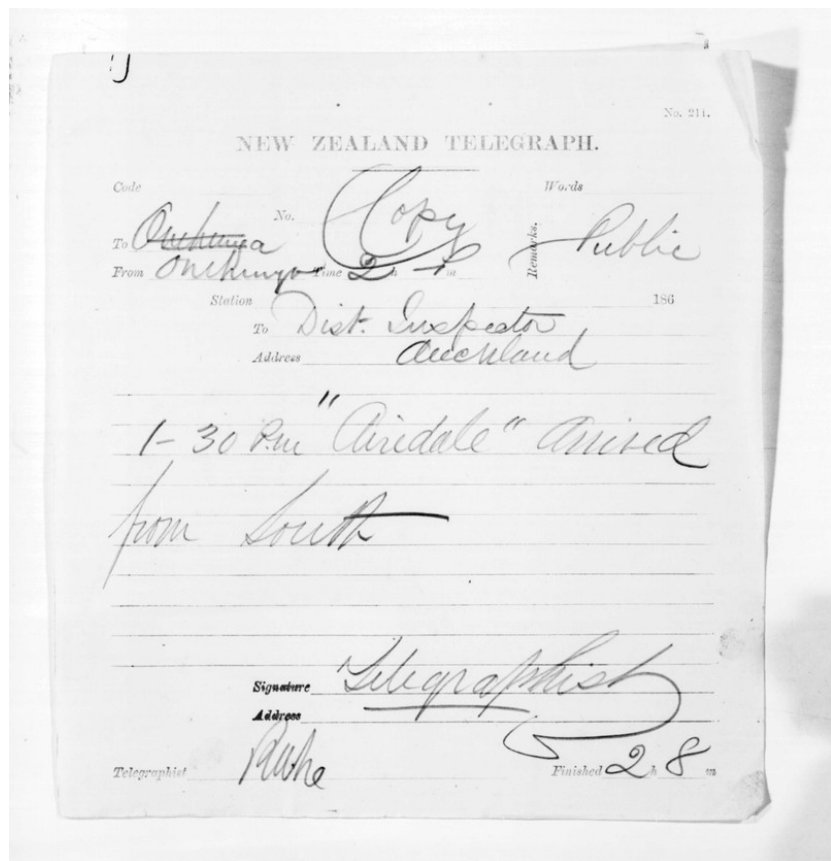 No. 211.
NEW ZEALAND TELEGRAPH.
Code
Words
No. Copy
To Onehunga
Remarks. Public
From Onehunga Time 2 h m
Station 186
To Dist. Inspector
Address Auckland
1-30 P.m "Airedale" Arrived
from South
Signature Telegraphist
Address
Telegraphist
Finished 2 h 8 m